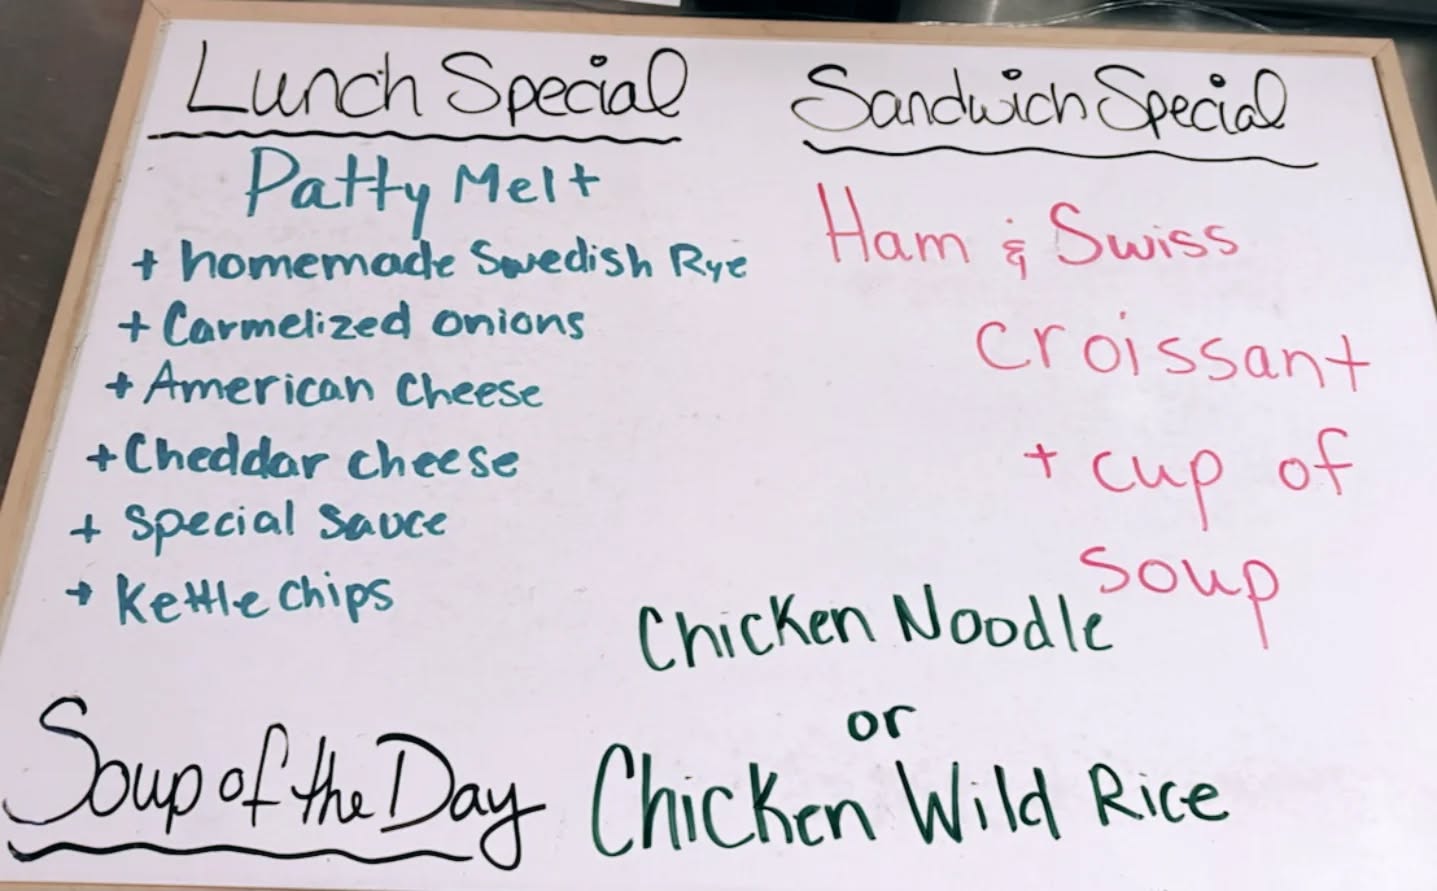 Lunch Special
Patty Melt
+ homemade Swedish Rye
+ Carmelized onions
+ American Cheese
+ Cheddar cheese
+ special sauce
+ Kettle chips
Sandwich Special
Ham & Swiss
croissant
+ cup of
soup
Soup of the Day
Chicken Noodle
or
Chicken Wild Rice